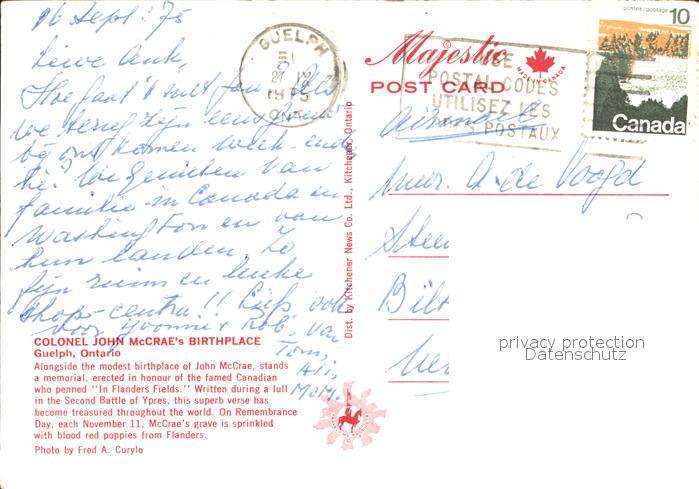 16 Sept: 75
Lieve Ank,
Hoe gaat 't met jou? Als
we terug zijn
bij ons komen week-end
hè? We genieten van
familie in Canada en
Washington en van
hun landen. Zo
fijn ruim en leuke
shop-centra!! Liefs, ook
voor Yvonne + Rob, van
Tom,
GUELPH
21 IX
1975
ONT
Majestic
MADE IN CANADA
POST CARD
USE
POSTAL CODES
UTILISEZ LES
POSTAUX
postes/postage
10
Canada
airmail
Mevr. A. de Voogd
Stee
Bilt
privacy protection
Datenschutz
Dist. by Kitchener News Co. Ltd., Kitchener, Ontario
COLONEL JOHN McCRAE's BIRTHPLACE
Guelph, Ontario
Alongside the modest birthplace of John McCrae, stands
a memorial, erected in honour of the famed Canadian
who penned "In Flanders Fields." Written during a lull
in the Second Battle of Ypres, this superb verse has
become treasured throughout the world. On Remembrance
Day, each November 11, McCrae's grave is sprinkled
with blood red poppies from Flanders.
Photo by Fred A. Curylo